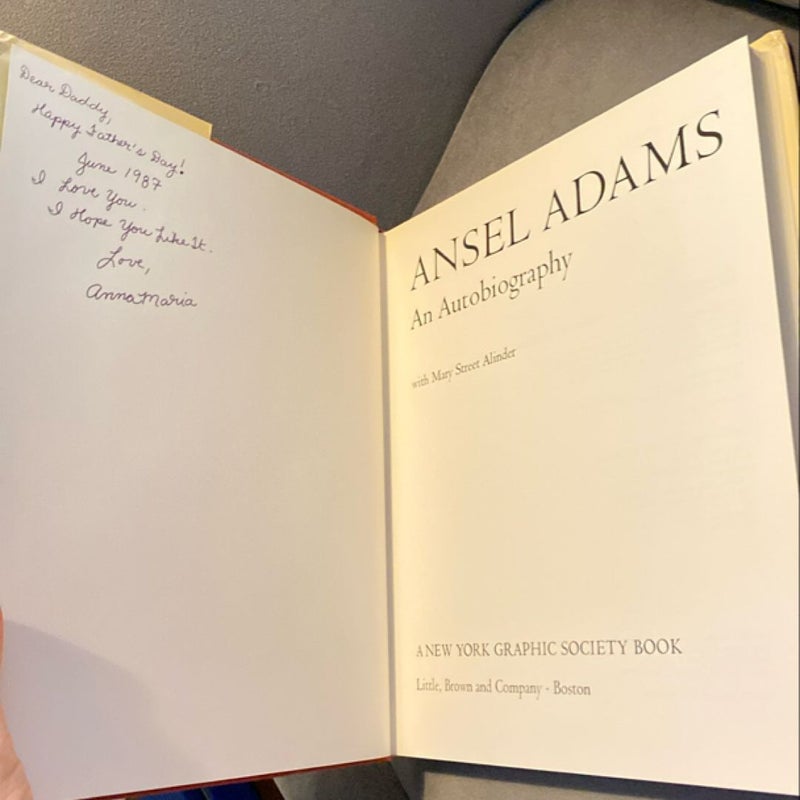 Dear Daddy,
Happy Father's Day!
June 1987
I Love You.
I Hope You Like It.
Love,
AnnaMaria
ANSEL ADAMS
An Autobiography
with Mary Street Alinder
A NEW YORK GRAPHIC SOCIETY BOOK
Little, Brown and Company · Boston